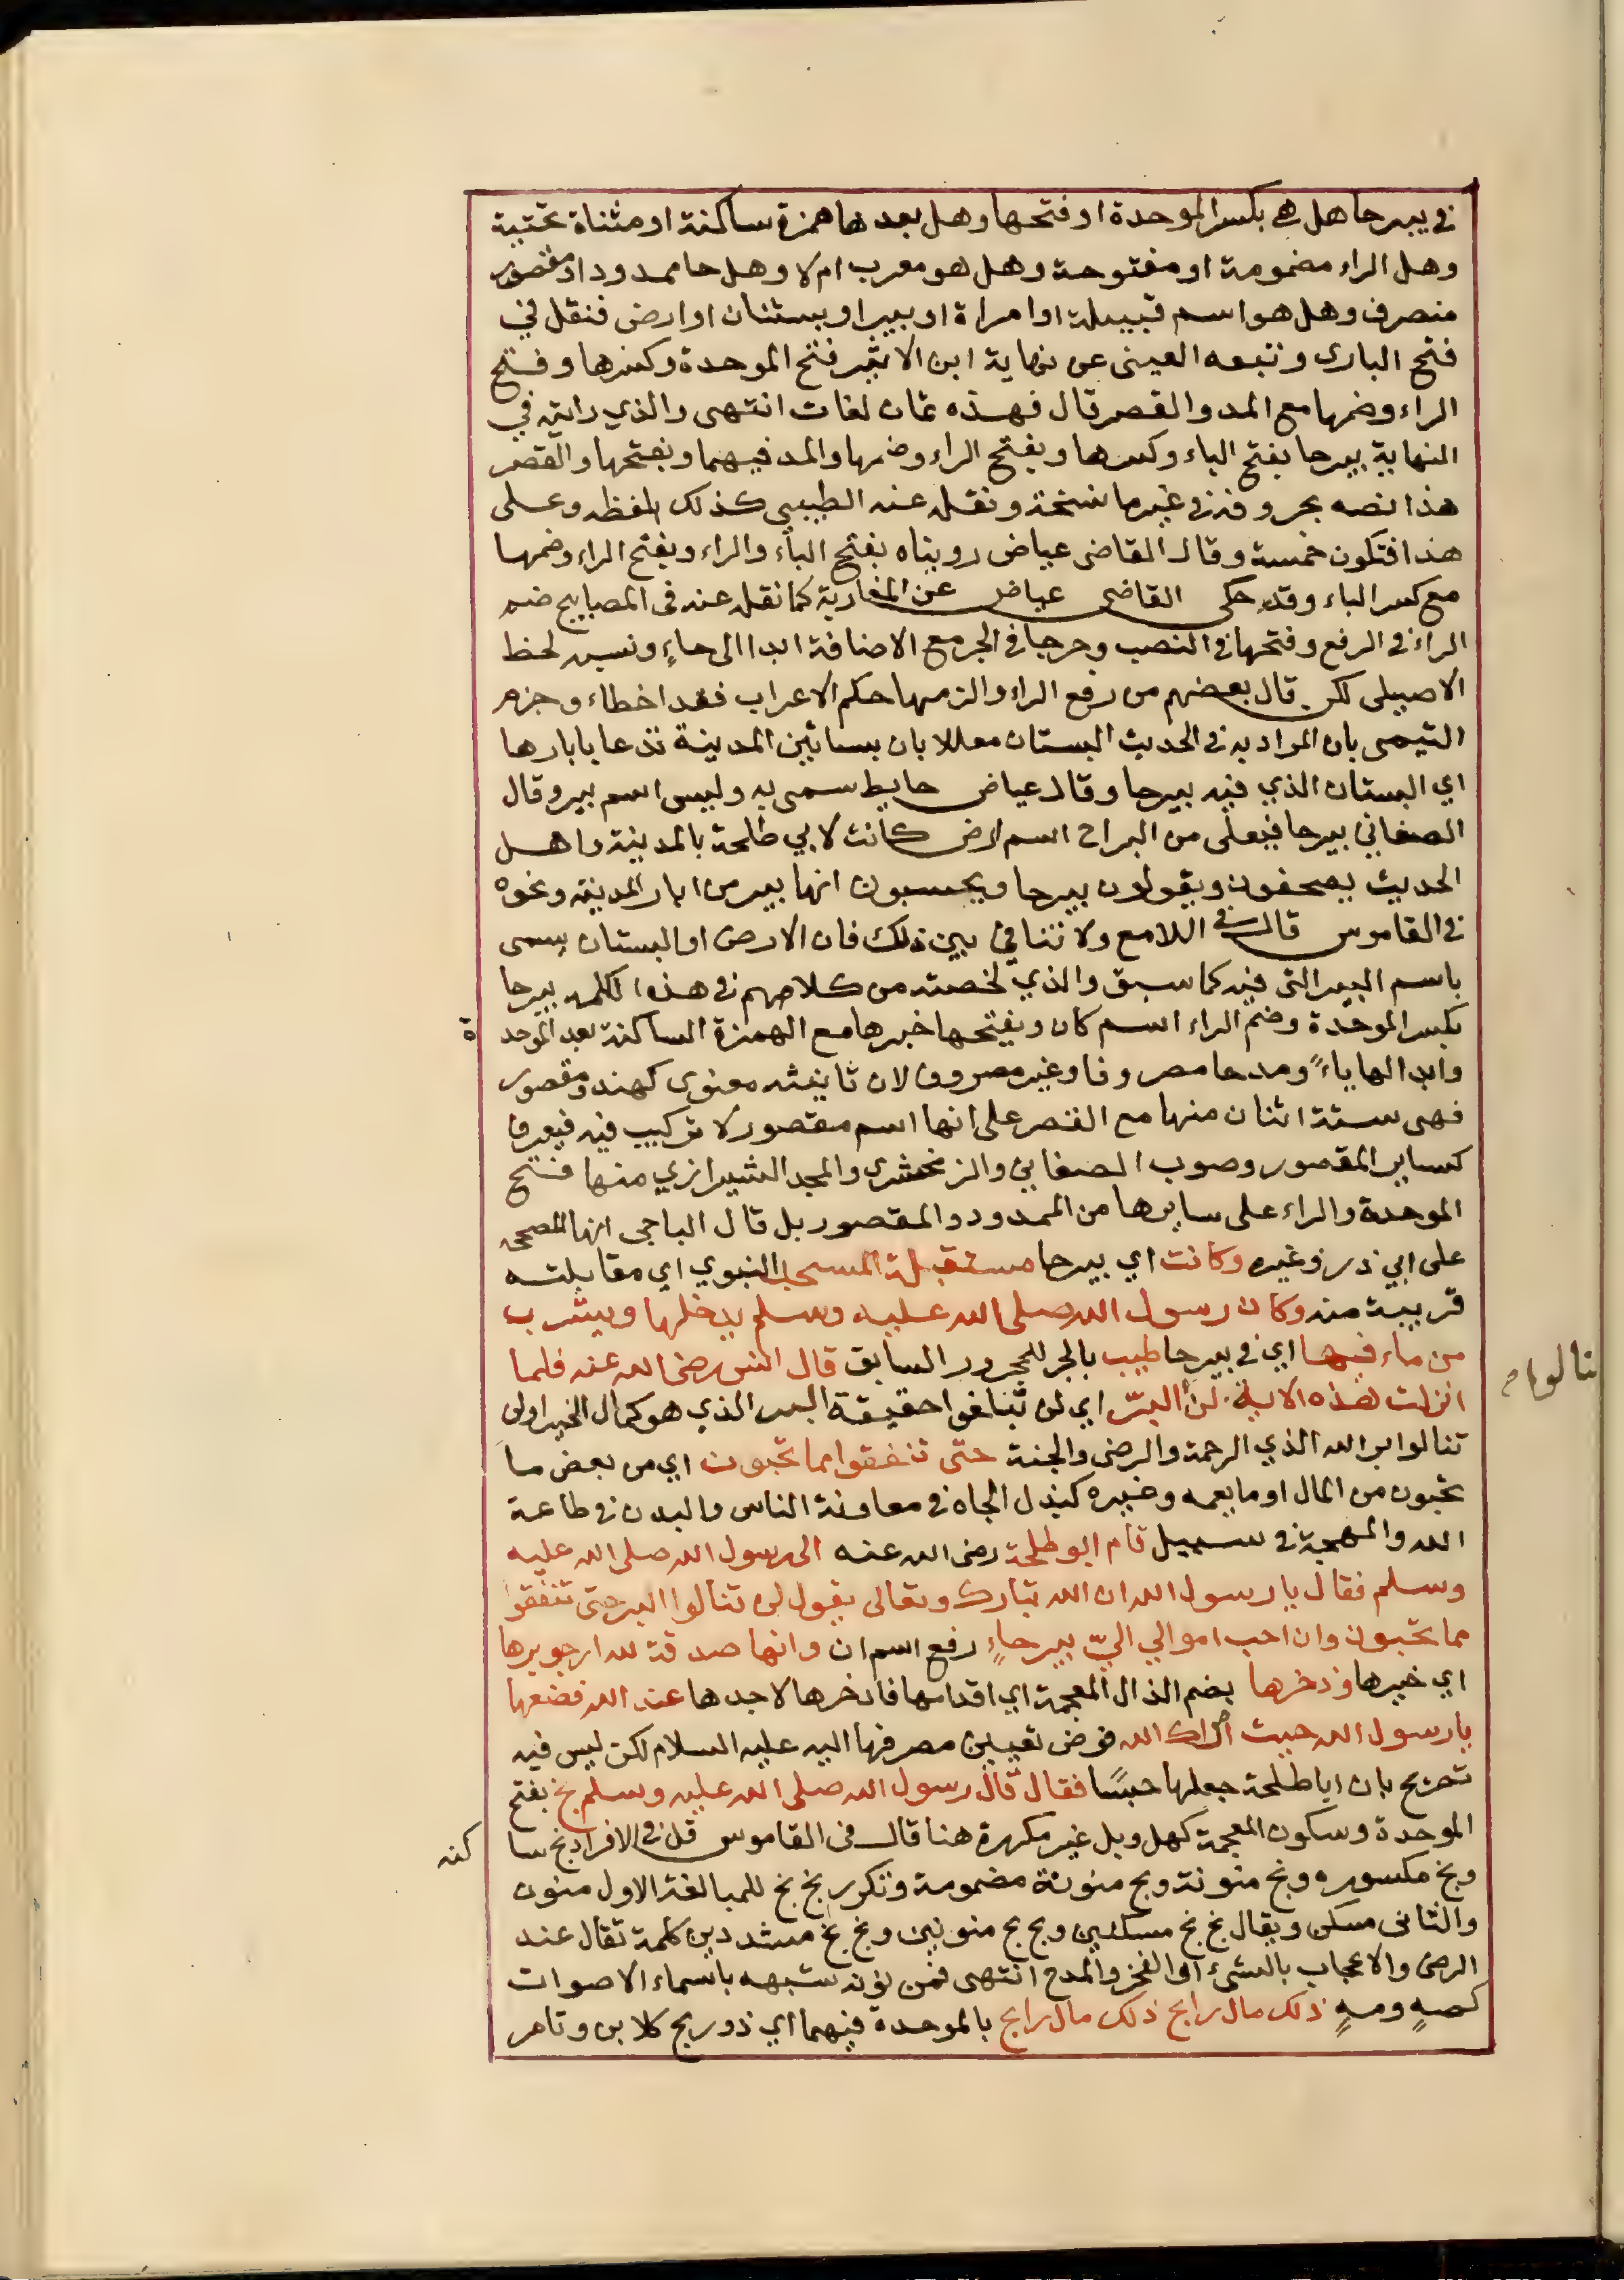 في بيرحا هل هي بكسر الموحدة او فتحها وهل بعدها همزة ساكنة او مثناة تحتية
وهل الراء مضمومة او مفتوحة وهل هو معرب ام لا وهل حا ممدود او مقصور
منصرف وهل هو اسم قبيلة او امراة او بير او بستان او ارض فنقل في
فتح الباري وتبعه العيني عن نهاية ابن الاثير فتح الموحدة وكسرها وفتح
الراء وضمها مع المد والقصر قال فهذه ثمان لغات انتهى والذي رايته في
النهاية بيرحا بفتح الباء وكسرها وبفتح الراء وضمها والمد فيهما وبفتحها والقصر
هذا نصه بحروفه في غير ما نسخة ونقله عنه الطيبي كذلك بلفظه وعلى
هذا فتكون خمسة وقال القاضي عياض رويناه بفتح الباء والراء وبفتح الراء وضمها
مع كسر الباء وقد حكى القاضي عياض عن المغاربة كما نقله عنه في المصابيح ضم
الراء في الرفع وفتحها في النصب وجرها في الجر مع الاضافة ابدا الى حاءٍ ونسبه لخط
الاصيلي لكن قال بعضهم من رفع الراء والزمها حكم الاعراب فقد اخطاء وجزم
التيمي بان المراد به في الحديث البستان معللا بان بساتين المدينة تدعا بابارها
اي البستان الذي فيه بيرحا وقال عياض حايط سمي به وليس اسم بير وقال
الصغاني بيرحا فيعلى من البراح اسم ارض كانت لابي طلحة بالمدينة واهل
الحديث يصحفون ويقولون بيرحا ويحسبون انها بير من ابار المدينة ونحوه
في القاموس قال في اللامع ولا تنافي بين ذلك فان الارض او البستان يسمى
باسم البير التي فيه كما سبق والذي لخصته من كلامهم في هذه الكلمه بيرحا
بكسر الموحدة وضم الراء اسم كان وبفتحها خبرها مع الهمزة الساكنة بعد الموحد
ة
وابدالها ياءً ومد حا مصروفا وغير مصروف لان تانيثه معنوي كهند ومقصور
فهي ستة اثنان منها مع القصر على انها اسم مقصور لا تركيب فيه فيعرف
كساير المقصور وصوب الصغاني والزمخشري والمجد الشيرازي منها فتح
الموحدة والراء على سايرها من الممدود والمقصور بل قال الباجي انها المصححه
على ابي ذر وغيره وكانت اي بيرحا مستقبلة المسجد النبوي اي مقابلته
قريبة منه وكان رسول الله صلى الله عليه وسلم يدخلها ويشرب
من ماء فيها اي في بيرحا طيب بالجر للمجرور السابق قال انس رضي الله عنه فلما
انزلت هذه الاية لن البرّ اي لن تبلغوا حقيقة البر الذي هو كمال الخير او لن
تنالوا
تنالوا بر الله الذي الرحمة والرضى والجنة حتى تنفقوا مما تحبون اي من بعض ما
تحبون من المال او ما يعمه وغيره كبذل الجاه في معاونة الناس والبدن في طاعة
الله والمهجة في سبيل قام ابو طلحة رضي الله عنه الى رسول الله صلى الله عليه
وسلم فقال يا رسول الله ان الله تبارك وتعالى يقول لن تنالوا البر حتى تنفقوا
مما تحبون وان احب اموالي اليّ بيرحاءٍ رفع اسم ان وانها صدقة لله ارجو برها
اي خيرها وذخرها بضم الذال المعجمة اي اقدمها فادخرها لاجدها عند الله فضعها
يا رسول الله حيث اراك الله فوض تعيين مصرفها اليه عليه السلام لكن ليس فيه
تصريح بان ابا طلحة جعلها حبسًا فقال قال رسول الله صلى الله عليه وسلم بخ بفتح
الموحدة وسكون المعجمة كهل وبل غير مكررة هنا قال في القاموس قل في الافراد بخ سا
كنه
وبخ مكسوره وبخ منونة وبخ منونة مضمومة وتكرر بخ بخ للمبالغة الاول منون
والثاني مسكن ويقال بخ بخ مسكنين وبخ بخ منونين وبخ بخ مشددين كلمة تقال عند
الرضى والاعجاب بالشيء او الفخر والمدح انتهى فمن نونه شبهه باسماء الاصوات
كصهٍ ومهٍ ذلك مال رابح ذلك مال رابح بالموحدة فيهما اي ذو ربح كلابن وتامر